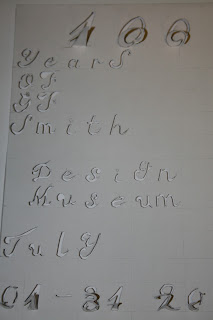 100
Years
OF
GF
Smith
Design
Museum
July
01-31 20